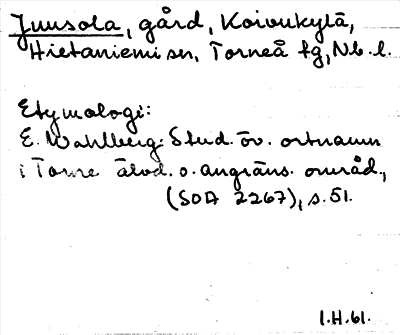 Juusola, gård, Koivukylä,
Hietaniemi sn, Torneå tg, Nb. l.
Etymologi:
E. Wahlberg: Stud. öv. ortnamn
i Torne älvd. o. angräns. områd.,
(SOA 2267), s. 51.
I.H. 61.